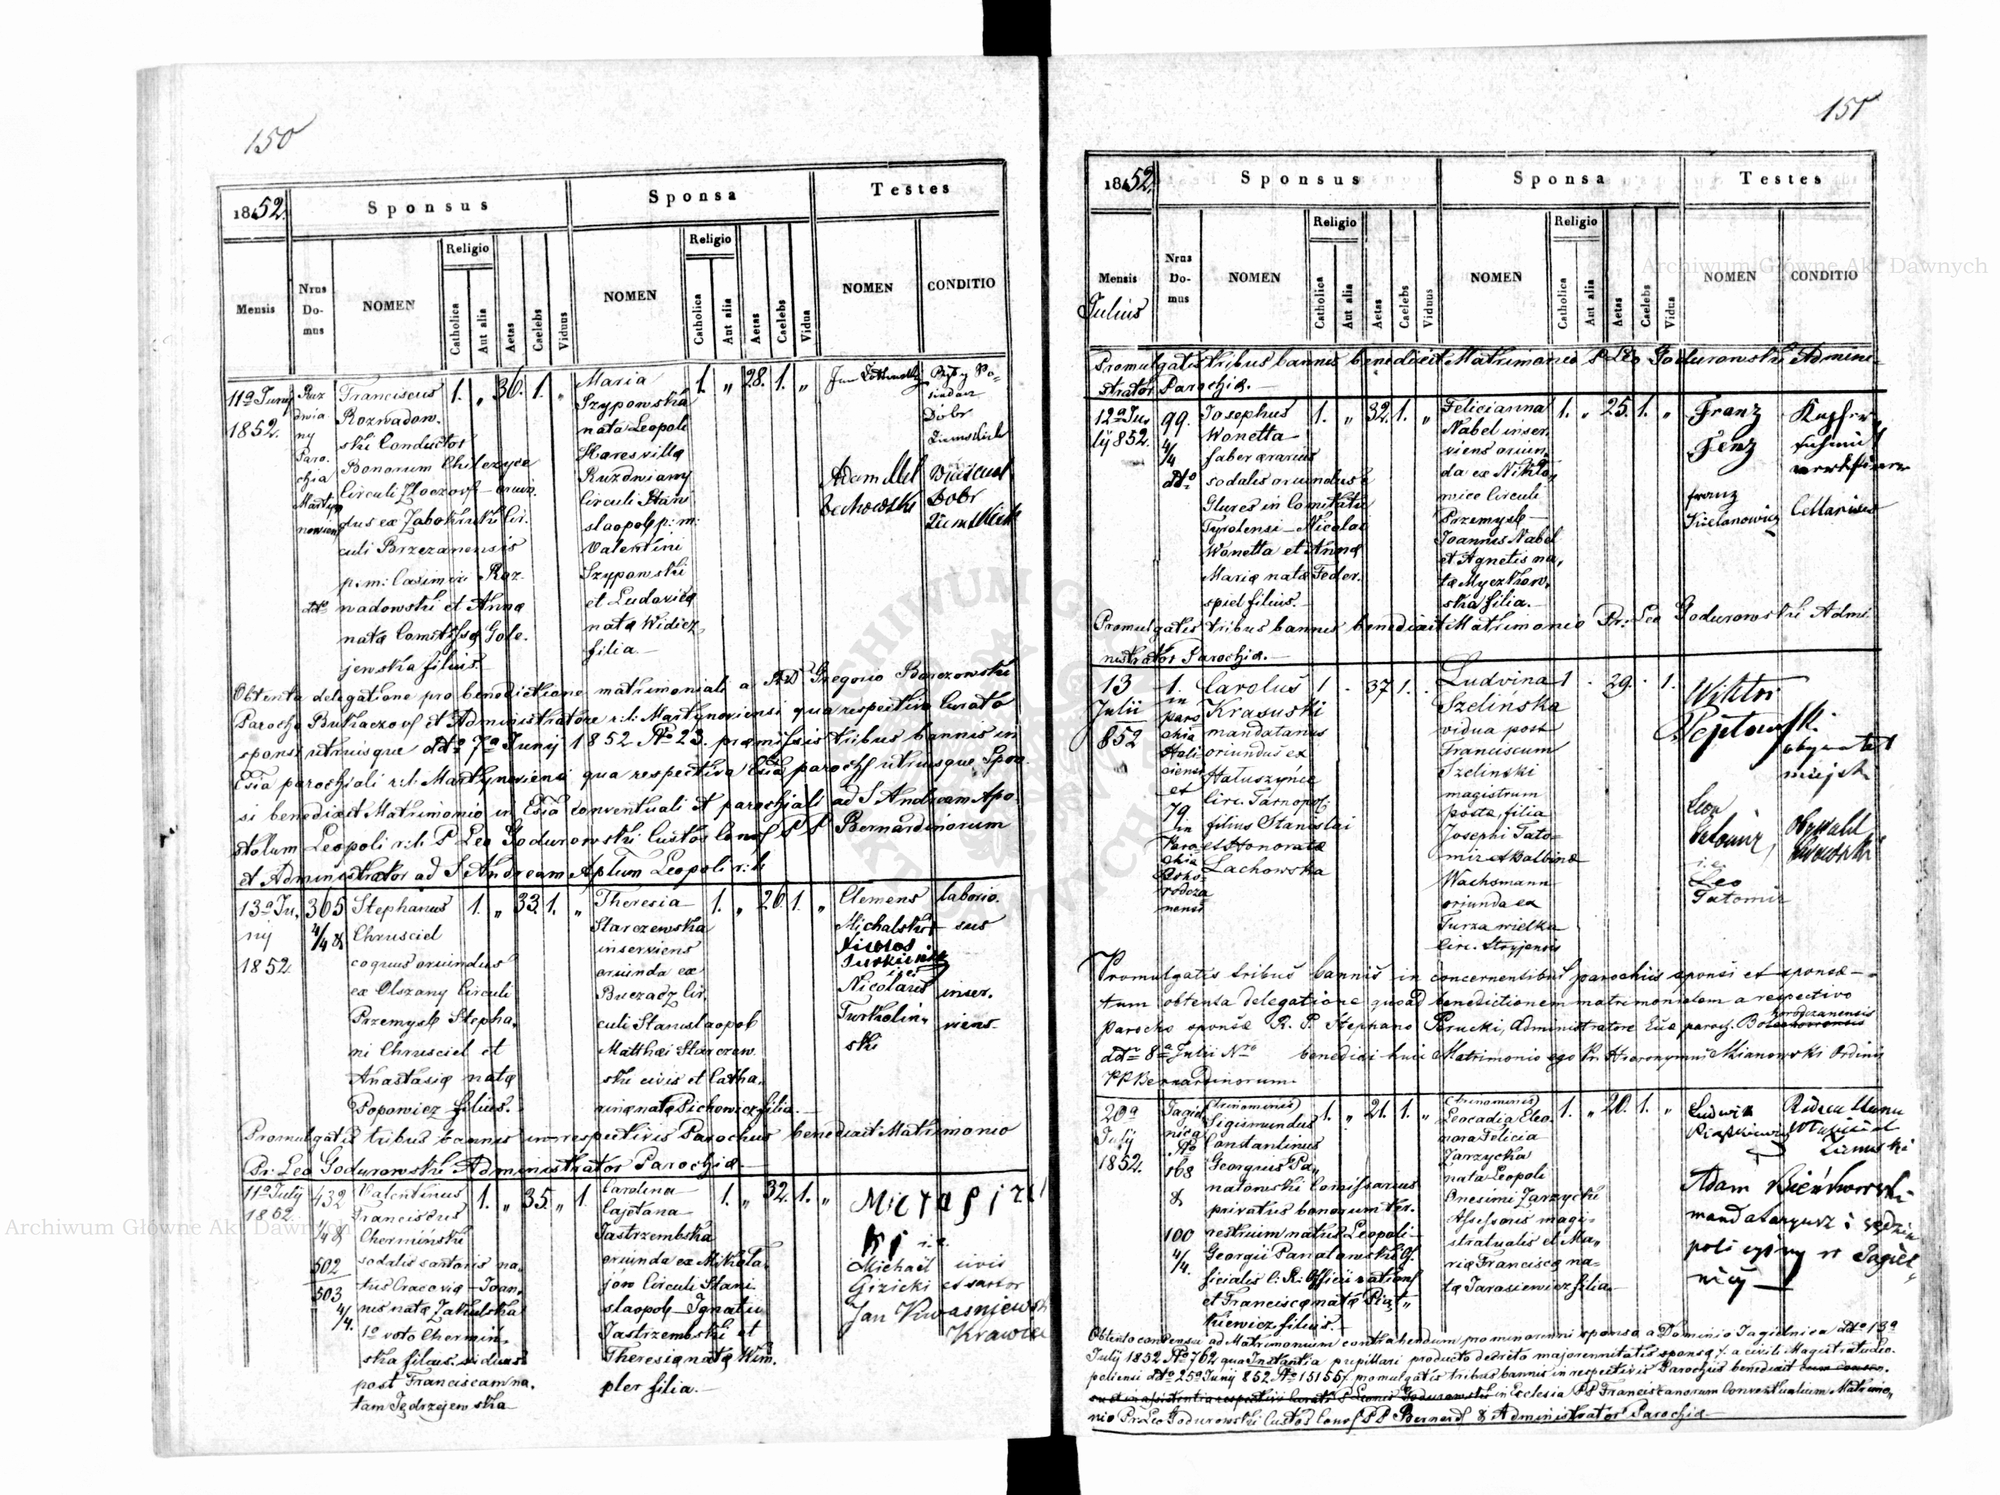 150
1852.
Sponsus
Sponsa
Testes
Mensis
Nrus Domus
NOMEN
Religio
Catholica
Aut alia
Aetas
Caelebs
Viduus
NOMEN
Religio
Catholica
Aut alia
Aetas
Caelebs
Vidua
NOMEN
CONDITIO
11a Juny
1852.
Paro.
chia
Martyn
Franciscus
Rozwadow.
ski Conductor
Bonorum Chilczyce
Circuli Złoczow oriun.
dus ex Zabokruki Cir.
culi Brzezanensis
p: m: Casimiri Roz.
wadowski et Anna
nata Comtissa Gole.
jewska filius.
1. „ 36. 1. „
Maria
Szypowska
nata Leopoli
Haresvilla
Kuzdwiany
Circuli Stani
slaopol p: m:
Valentini
Szypowski
et Ludovica
nata Widicz
filia.
1. „ 28. 1. „
Dobr
Ziemskich
Adam Mel
bechowski
Dobr
Ziemskich
Obtenta delegatione pro benedictione matrimoniali a RD Gregorio Barczowski
Parocho Bukaczow et Administratore r: l: Martynoviensi qua respectivo Curato
sponsi utriusque ddto 7a Juny 1852 No 23. praemissis tribus bannis in
Ecclia parochiali r: l: Martynoviensi qua respectiva Ecclia paroch utriusque Spon
si benedixit Matrimonio in Ecclia conventuali et parochiali ad S Andream Apo.
stolum Leopoli r: l: P Leo Godurowski Custos Conv PP Bernardinorum
et Administrator ad S Andream Aplum Leopoli r: l:
13a Ju,
ny
1852.
365
4/4 &
Stephanus
Chrusciel
coquus oriundus
ex Olszany Circuli
Przemysl Stepha.
ni Chrusciel et
Anastasia nata
Popowicz filius.
1. „ 33. 1. „
Theresia
Starczewska
inserviens
oriunda ex
Buczacz Cir.
culi Stanislaopol
Matthaei Starczew.
ski civis et Catha.
rina nata Pichowicz filia.
1. „ 26. 1. „
Clemens
Michalski
i: e:
Nicolaus
Turkolin.
ski
laborio.
sus
inser.
viens.
Promulgatis tribus bannis in respectivis Parochiis benedixit Matrimonio
Pr: Leo Godurowski Administrator Parochia
11a July
1852.
432
4/4 &
502
503
4/4.
Valentinus
Franciscus
Cherminski
sodalis sartoris na.
tus Cracovia Joan.
nis nata Zakulska
1o voto Chermin.
ska filius. viduus
post Franciscam na.
tam Jędrzejewska
1. „ 35. „ 1
Carolina
Cajetana
Jastrzembska
oriunda ex Mikola
jow Circuli Stani
slaopol Ignatii
Jastrzembski et
Theresia nata Wim.
pler filia.
1. „ 32. 1. „
i. e.
Michaël
Gizicki
civis
et sartor
Jan Kwasniewski
Krawiec
151
1852.
Sponsus
Sponsa
Testes
Mensis
Julius
Nrus Domus
NOMEN
Religio
Catholica
Aut alia
Aetas
Caelebs
Viduus
NOMEN
Religio
Catholica
Aut alia
Aetas
Caelebs
Vidua
NOMEN
CONDITIO
Promulgatis tribus bannis benedixit Matrimonio P Leo Godurowski Admini-
strator Parochia.
12a Ju,
ly 852.
99.
4/4
ddto
Josephus
Wonetta
faber ararius
sodalis oriundus e
Glures in Comitatu
Tyrolensi Nicolai
Wonetta et Anna
Maria nata Feder.
spiel filius.
1. „ 32. 1. „
Felicianna
Nabel inser.
viens oriun,
da ex Nikło,
wice Circuli
Przemysl
Joannis Nabel
et Agnetis na,
ta Myczkow.
ska filia.
1. „ 25. 1. „
Franz
Fenz
Franz
Kielanowicz
Kupfer
schmid
Cellarius
Promulgatis tribus bannis benedixit Matrimonio Pr: Leo Godurowski Admi.
nistrator Parochia.
13
Julii
852
1.
in
paro
chia
Hali
ciensi
et
79
in
Paro
chia
Boho
rodcza
nensi
Carolus
Krasuski
mandatarius
oriundus ex
Hałuszynce
Circ. Tarnopol:
filius Stanislai
et Honorata
Lachowska
1 . 37 1. .
Ludvina
Szelińska
vidua post
Franciscum
Szelinski
magistrum
posta, filia
Josephi Tato
mir et Balbina
Wachsmann
oriunda ex
Turza wielka
Circ. Stryjensis
1 . 29. . 1.
Wiktor
obywatel
miejski
Leon
Tatomir,
i. e.
Leo
Tatomir
Obywatel
Promulgatis tribus bannis in concernentibus parochiis sponsi et sponsae
tum obtenta delegatione quoad benedictionem matrimonialem a respectivo
parocho sponsae R. P. Stephano Perucki, Administratore Ecclae paroch. Bohorodczanensis
ddto 8a Julii Nro benedixi huic Matrimonio ego Pr. Hieronymus Mianowski Ordinis
PP Bernardinorum.
20a
July
1852.
Jagiel
nica
No
168
&
100
4/4.
(trinominis)
Sigismundus
Constantinus
Georgius Pa,
natowski Comissarius
privatus bonorum ter.
restrium natus Leopoli
Georgii Panatowski Of
ficialis C: R: Officii rationf
et Francisca nata Piąt„
kiewicz filius.
1. „ 21. 1. „
(trinominis)
Leocadia Eleo
nora Felicia
Zarzycka
nata Leopoli
Onesimi Zarzycki
Assessoris magi,
stratualis et Ma,
ria Francisca na,
ta Tarasiewicz filia
1. „ 20. 1. „
Ludwik
Piątkiewicz
Właściciel
Ziemski
Adam Bieńkowski
mandataryusz i sędzia
policyjny w Jagiel
nicy
Obtento consensu ad Matrimonium contrahendum pro minorenni sponsa a Dominio Jagielnica ddto 13a
July 1852 No 762 qua Instantia pupillari producto decreto majorennitatis sponsa f. a civili Magistratu Leo.
poliensi ddto 25a Juny 852 No 15155 f. promulgatis tribus bannis in respectivis Parochiis benedixit
in Ecclesia PP Franciscanorum Conventualium Matrimo,
nio Pr: Leo Godurowski Custos Conv PP Bernard & Administrator Parochia
Archiwum Główne Akt Dawnych
Archiwum Główne Akt Dawnych